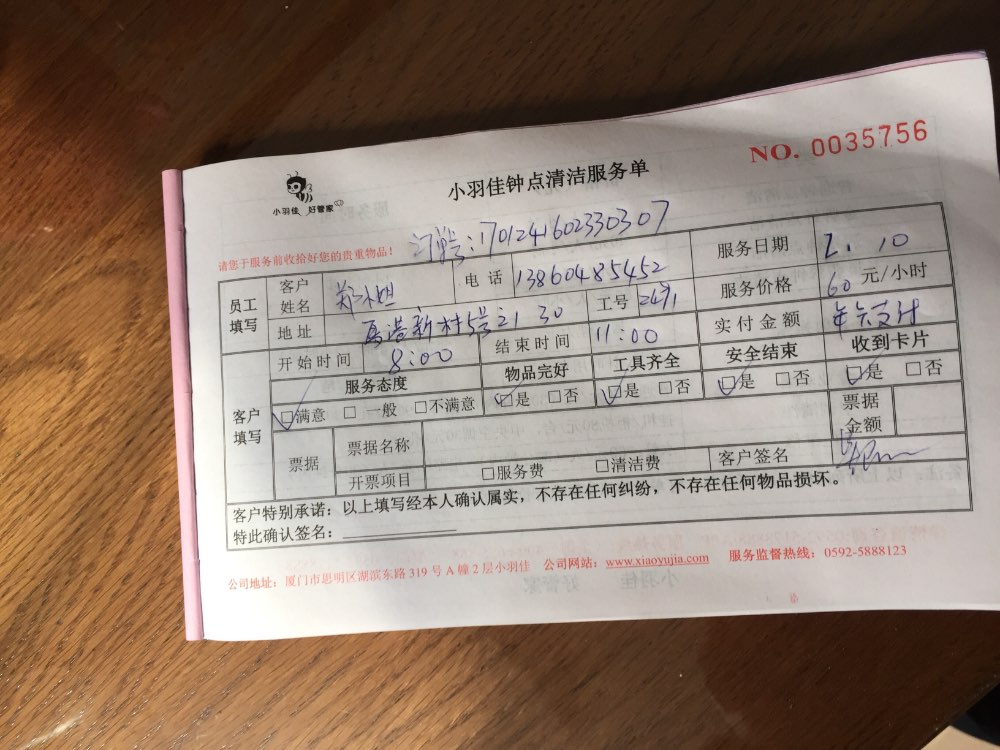 NO. 0035756
小羽佳 好管家
小羽佳钟点清洁服务单
订单号:1701241602330307
请您于服务前收拾好您的贵重物品!
员工填写 客户姓名 郑小姐 电话 13860485452 服务日期 2. 10
地址 新村5号21 30 工号 2491 服务价格 60 元/小时
开始时间 8:00 结束时间 11:00 实付金额 年卡支付
客户填写 服务态度 物品完好 工具齐全 安全结束 收到卡片
☑满意 □ 一般 □不满意 ☑是 □否 ☑是 □否 ☑是 □否 ☑是 □否
票据 票据名称 票据金额
开票项目 □服务费 □清洁费 客户签名
客户特别承诺:以上填写经本人确认属实,不存在任何纠纷,不存在任何物品损坏。
特此确认签名:
公司地址:厦门市思明区湖滨东路 319 号 A 幢 2 层小羽佳 公司网站:www.xiaoyujia.com 服务监督热线:0592-5888123